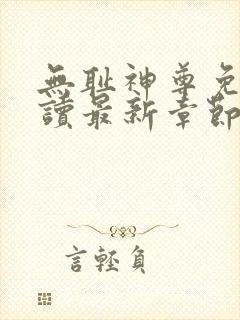 無耻神尊免
讀最新章節
言輕負